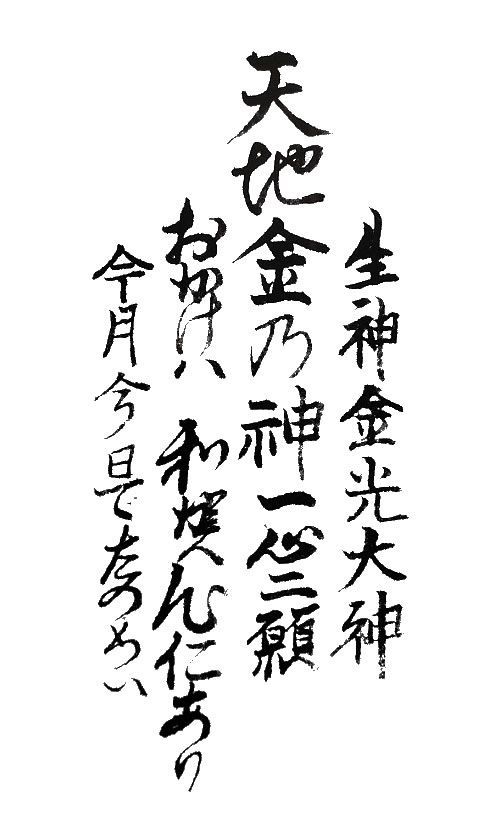 生神金光大神
天地金乃神一心二願
おかけハ和賀心仁あり
今月今日でたのめい